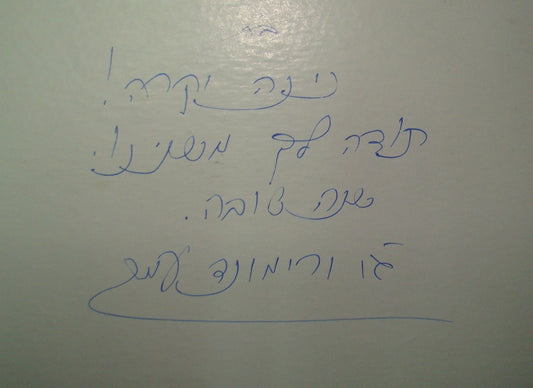 ב״ה
נינה יקרה!
תודה לך משנינו.
שנה טובה.
ג'ו ורימונד